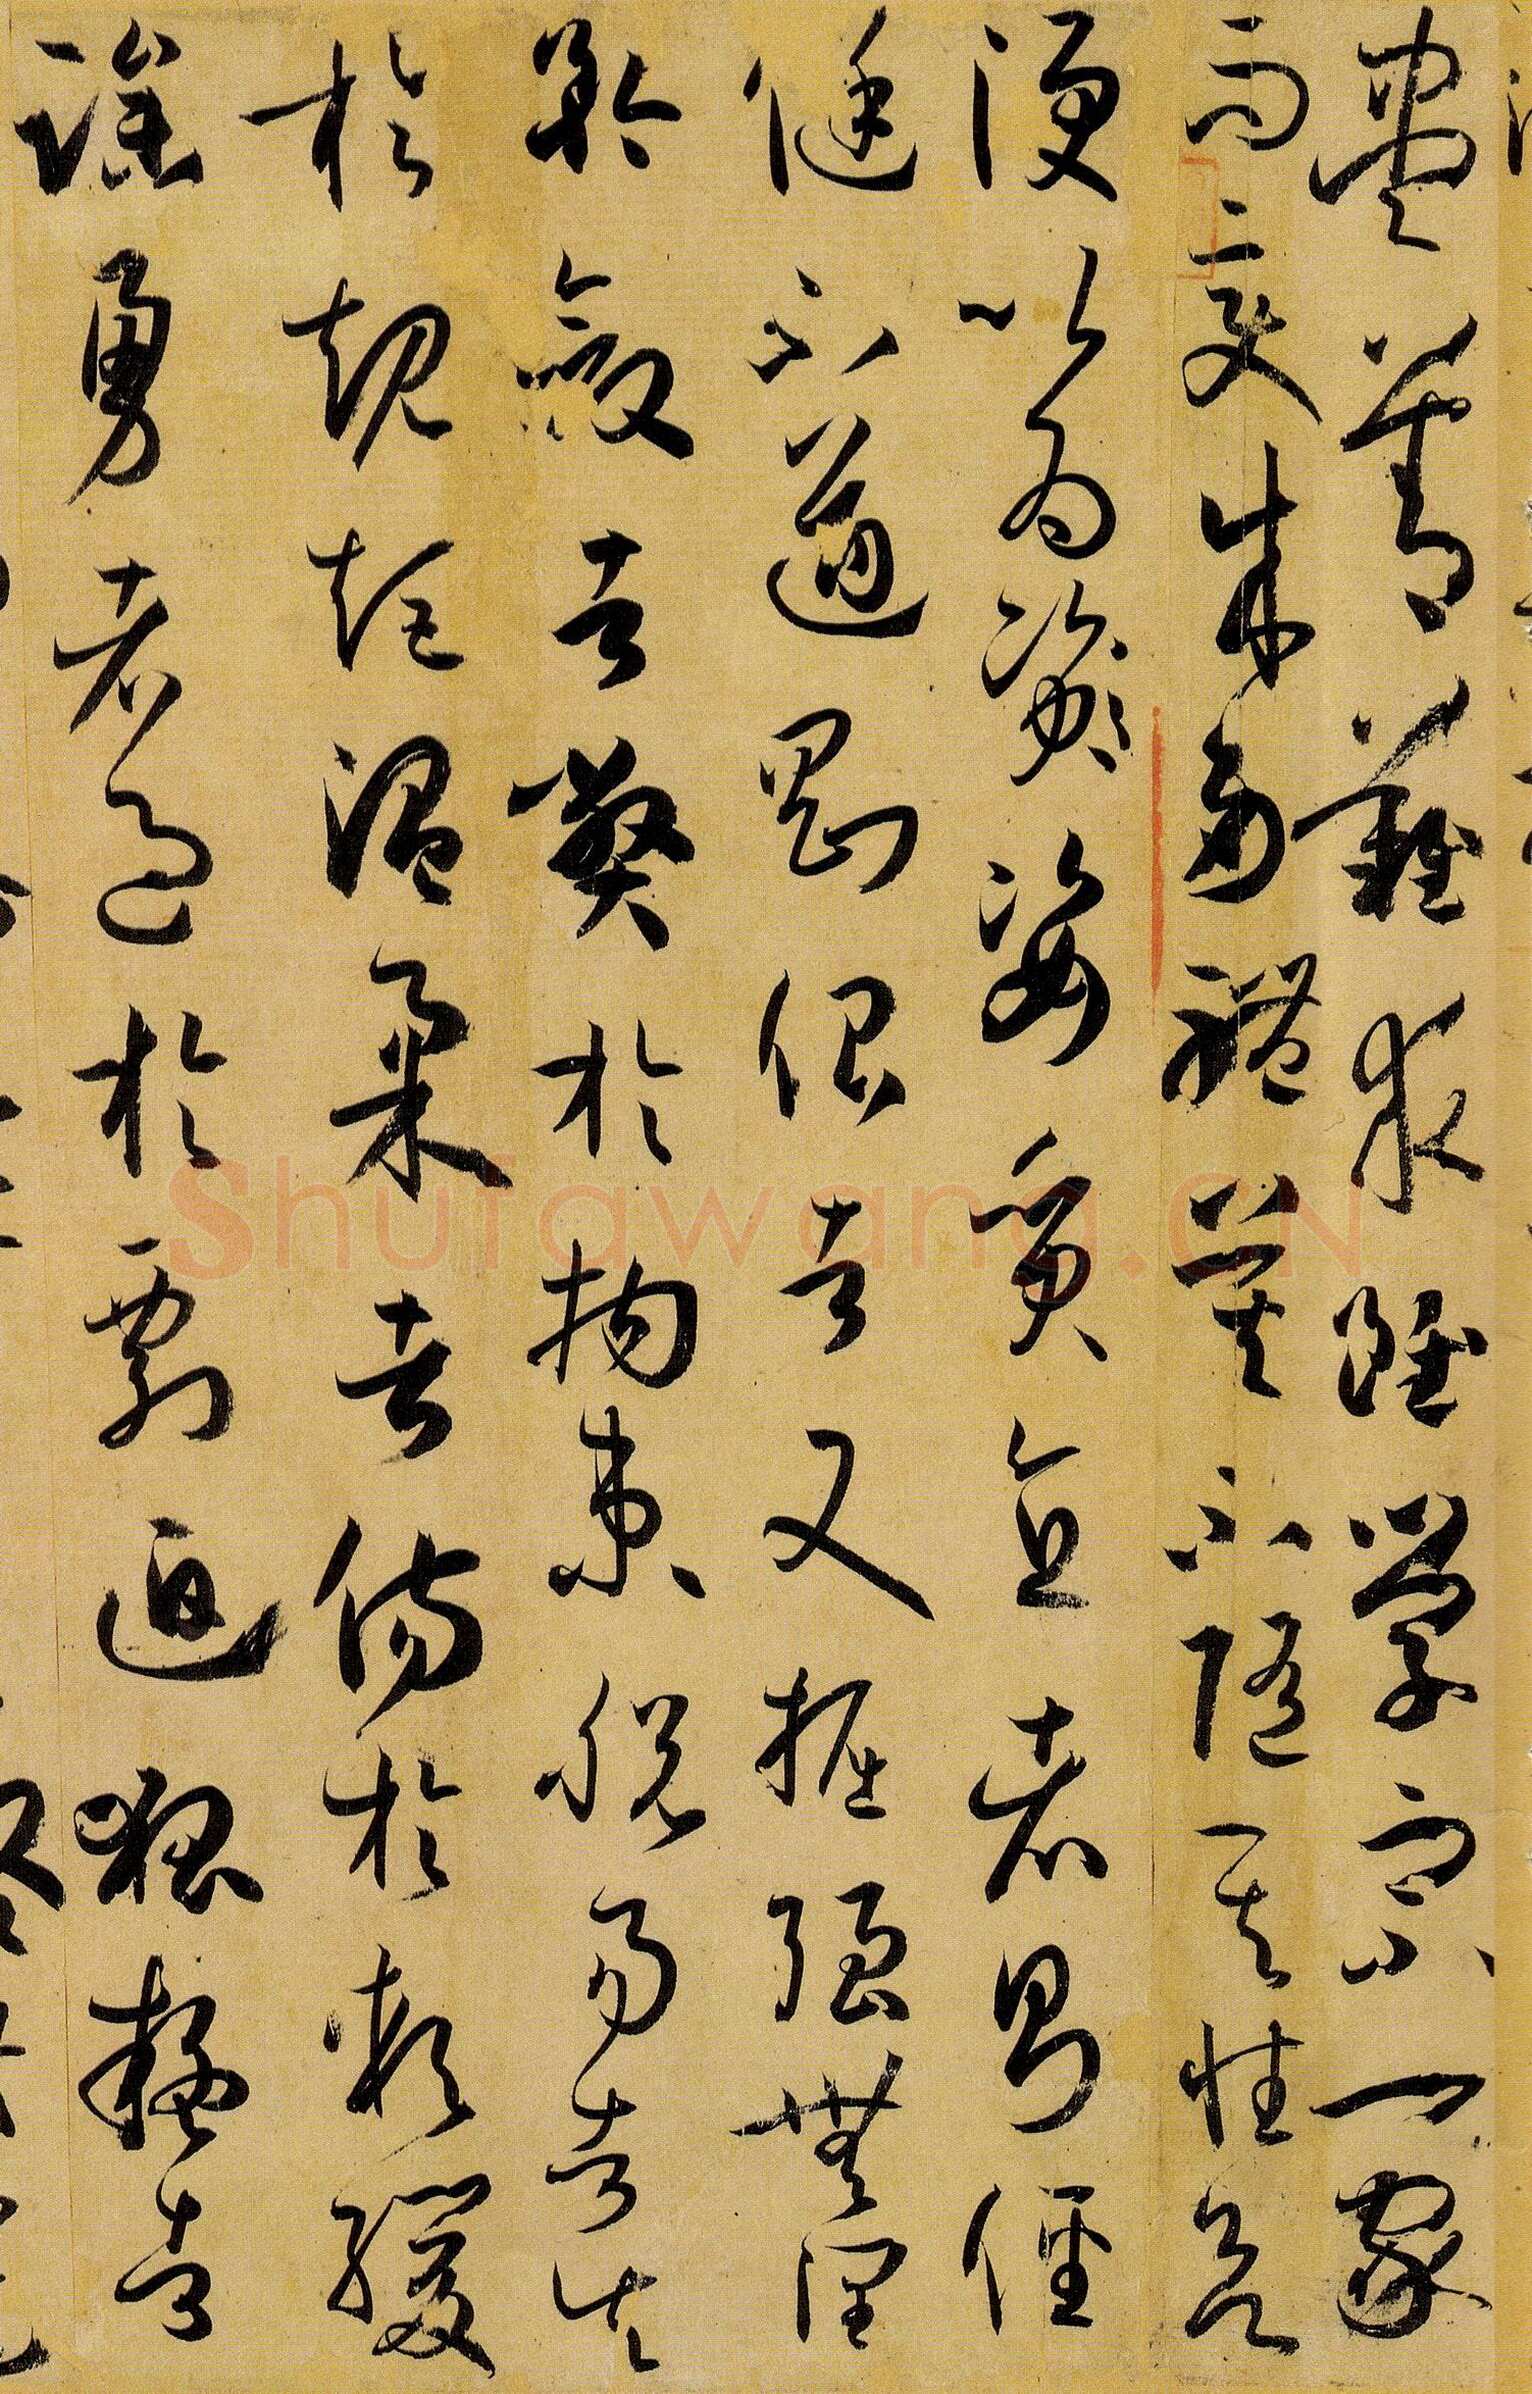 盡善難求雖學宗一家
而變成多體莫不隨其性欲
便以為資姿質直者則俓
侹不遒剛佷者又掘強無潤
矜斂者弊於拘束脫易者失
於規矩溫柔者傷於軟緩
躁勇者過於剽迫狐疑者
Shufawang.CN